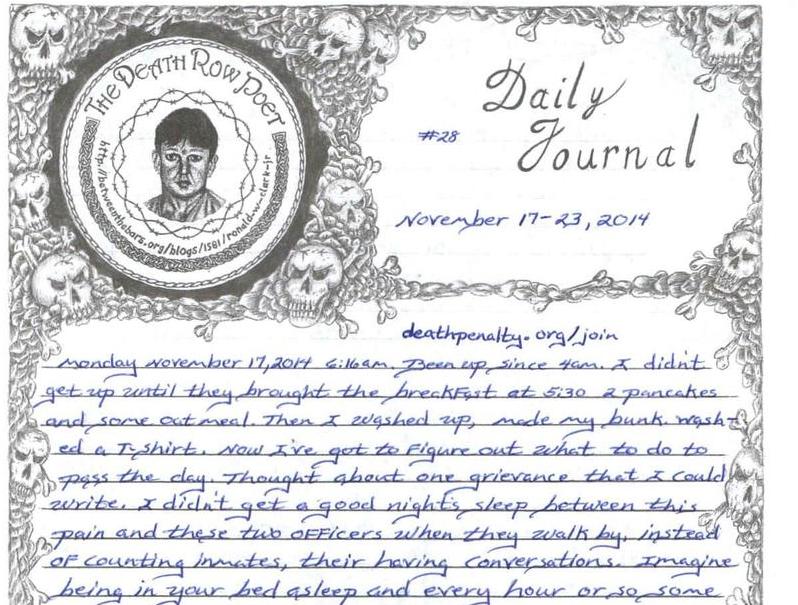 THE DEATH ROW POET
http://betweenthebars.org/blogs/1581/ronald-w-clark-jr
Daily
Journal
#28
November 17-23, 2014
deathpenalty.org/join
Monday November 17,2014 6:16am. Been up since 4am. I didn't
get up until they brought the breakfast at 5:30 2 pancakes
and some oatmeal. Then I washed up, made my bunk. wash-
ed a T-shirt. Now I've got to figure out what to do to
pass the day. Thought about one grievance that I could
write. I didn't get a good night's sleep between this
pain and these two officers when they walk by, instead
of counting inmates, their having conversations. Imagine
being in your bed asleep and every hour or so some